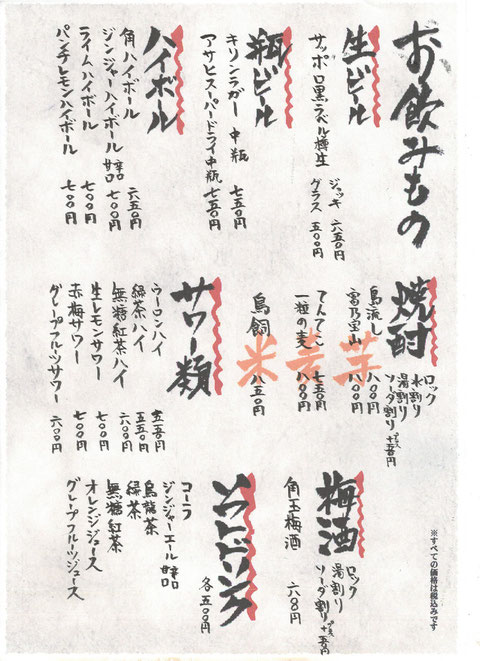 お飲みもの
生ビール
サッポロ黒ラベル樽生
ジョッキ 六五〇円
グラス 五〇〇円
瓶ビール
キリンラガー 中瓶 七五〇円
アサヒスーパードライ中瓶 七五〇円
ハイボール
角ハイボール 六五〇円
ジンジャーハイボール 辛口 甘口 七〇〇円
ライムハイボール 七〇〇円
パンチレモンハイボール 七〇〇円
焼酎
ロック
水割り
湯割り
ソーダ割り プラス 五〇円
芋
島流し 八〇〇円
富乃宝山 八〇〇円
麦
てんてこ 七五〇円
一粒の麦 八〇〇円
米
鳥飼 八五〇円
サワー類
ウーロンハイ 五五〇円
緑茶ハイ 五五〇円
無糖紅茶ハイ 六〇〇円
生レモンサワー 七〇〇円
赤梅サワー 七〇〇円
グレープフルーツサワー 六〇〇円
梅酒
ロック
湯割り
ソーダ割り プラス 五〇円
角玉梅酒
ソフトドリンク
各五〇〇円
コーラ
ジンジャーエール 辛口 甘口
烏龍茶
緑茶
無糖紅茶
オレンジジュース
グレープフルーツジュース
※すべての価格は税込みです